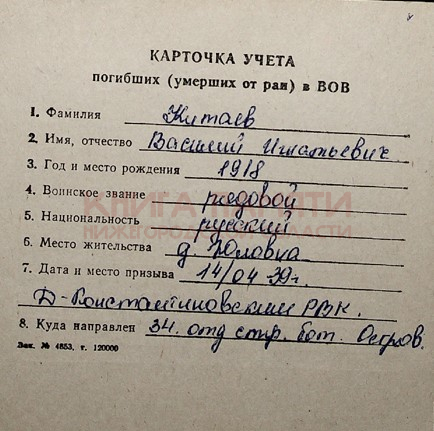 КАРТОЧКА УЧЕТА
погибших (умерших от ран) в ВОВ
1. Фамилия Китаев
2. Имя, отчество Василий Игнатьевич
3. Год и место рождения 1918
4. Воинское звание рядовой
КНИГА ПАМЯТИ
5. Национальность русский
НИЖЕГОРОДСКОЙ ОБЛАСТИ
6. Место жительства д. Юловка
7. Дата и место призыва 14/04 39г.
Д-Константиновский РВК.
8. Куда направлен 34. отд стр. бат. Остров.
Зак. № 4853, т. 120000